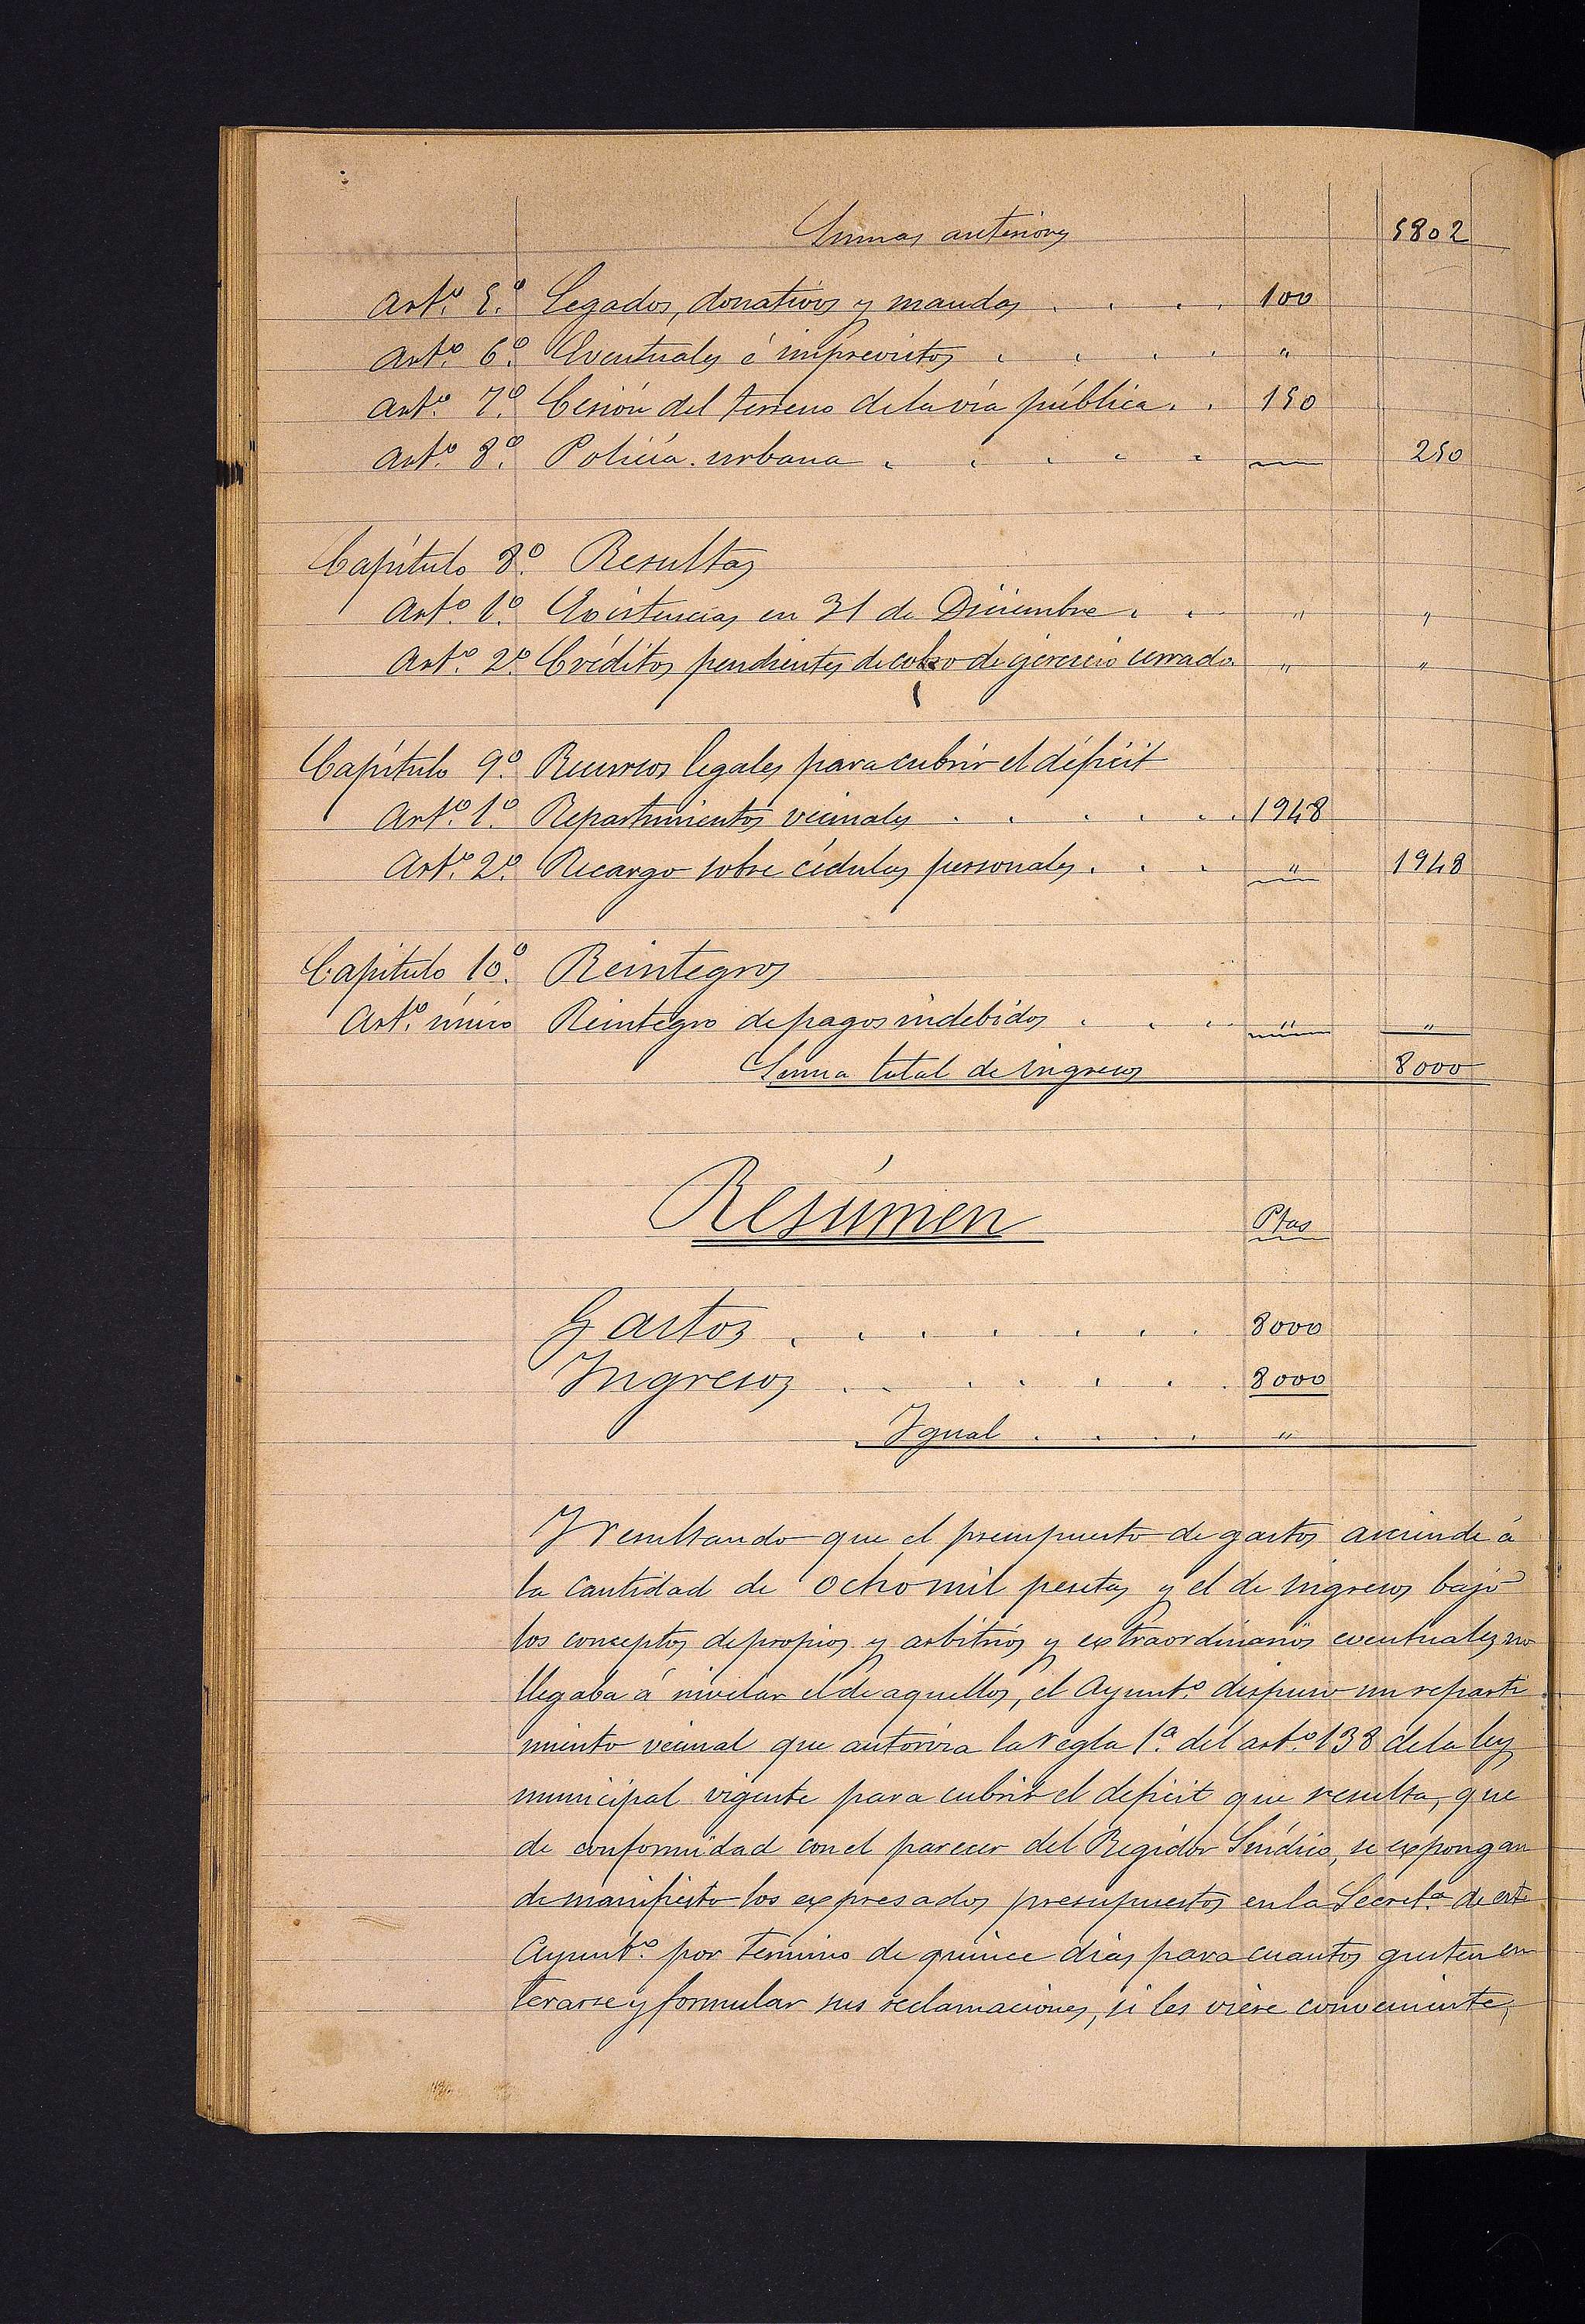 Sumas anteriores 5802
Artº. 5º. Legados, donativos y mandas . . . . 100
Artº. 6º. Eventuales é imprevistos . . . . "
Artº. 7º. Cesión del terreno de la vía pública . . 150
Artº. 8º. Policía urbana . . . . . — 250
Capítulo 8º. Resultas
Artº. 1º. Existencias en 31 de Diciembre . . " "
Artº. 2º. Créditos pendientes de cobro de ejercicio cerrado " "
Capítulo 9º. Recursos legales para cubrir el déficit
Artº. 1º. Repartimientos vecinales . . . . . . 1948
Artº. 2º. Recargo sobre cédulas personales . . . " 1948
Capitulo 10º. Reintegros
Artº. único Reintegro de pagos indebidos . . . " "
Suma total de ingresos 8000
Resúmen Ptas
Gastos . . . . . . . 8000
Ingresos . . . . . . . 8000
Igual . . . . "
Y resultando que el presupuesto de gastos asciende á
la cantidad de ocho mil pesetas y el de ingresos bajo
los conceptos de propios y arbitrios y extraordinarios eventuales no
llegaba á nivelar el de aquellos, el Ayuntº. dispuso un reparti
miento vecinal que autoriza la regla 1ª. del artº. 138 de la ley
municipal vigente para cubrir el deficit que resulta, que
de conformidad con el parecer del Regidor Síndico, se expongan
de manifiesto los expresados presupuestos en la Secretª. de este
Ayuntº. por termino de quince dias para cuantos gusten en
terarse y formular sus reclamaciones, si les viere conveniente,